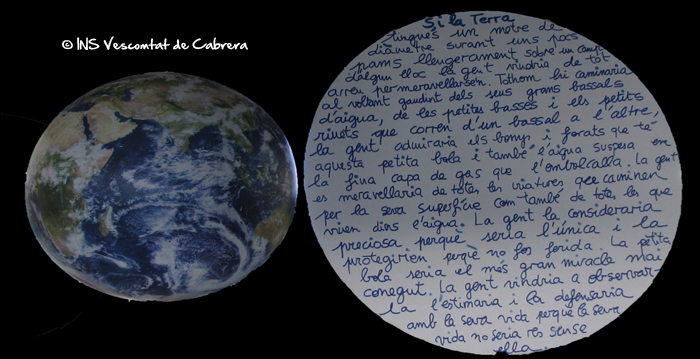 © INS Vescomtat de Cabrera
Si la Terra
tingués un metre de
diàmetre surant uns pocs
pams lleugerament sobre un camp
d'algun lloc la gent vindria de tot
arreu per meravellarsen. Tothom hi caminaria
al voltant gaudint dels seus grans bassals
d'aigua, de les petites basses i els petits
rivets que corren d'un bassal a l'altre,
la gent admiraria els bonys i forats que te
aquesta petita bola i també l'aigua suspesa en
la fina capa de gas que l'embolcalla. La gent
es meravellaria de totes les criatures que caminen
per la seva superfície com també de totes les que
viven dins l'aigua. La gent la consideraria
preciosa perquè seria l'única i la
protegirien perquè no fos ferida. La petita
bola seria el més gran miracle mai
conegut. La gent vindria a observar-
la l'estimaria i la defensaria
amb la seva vida perquè la seva
vida no seria res sense
ella.